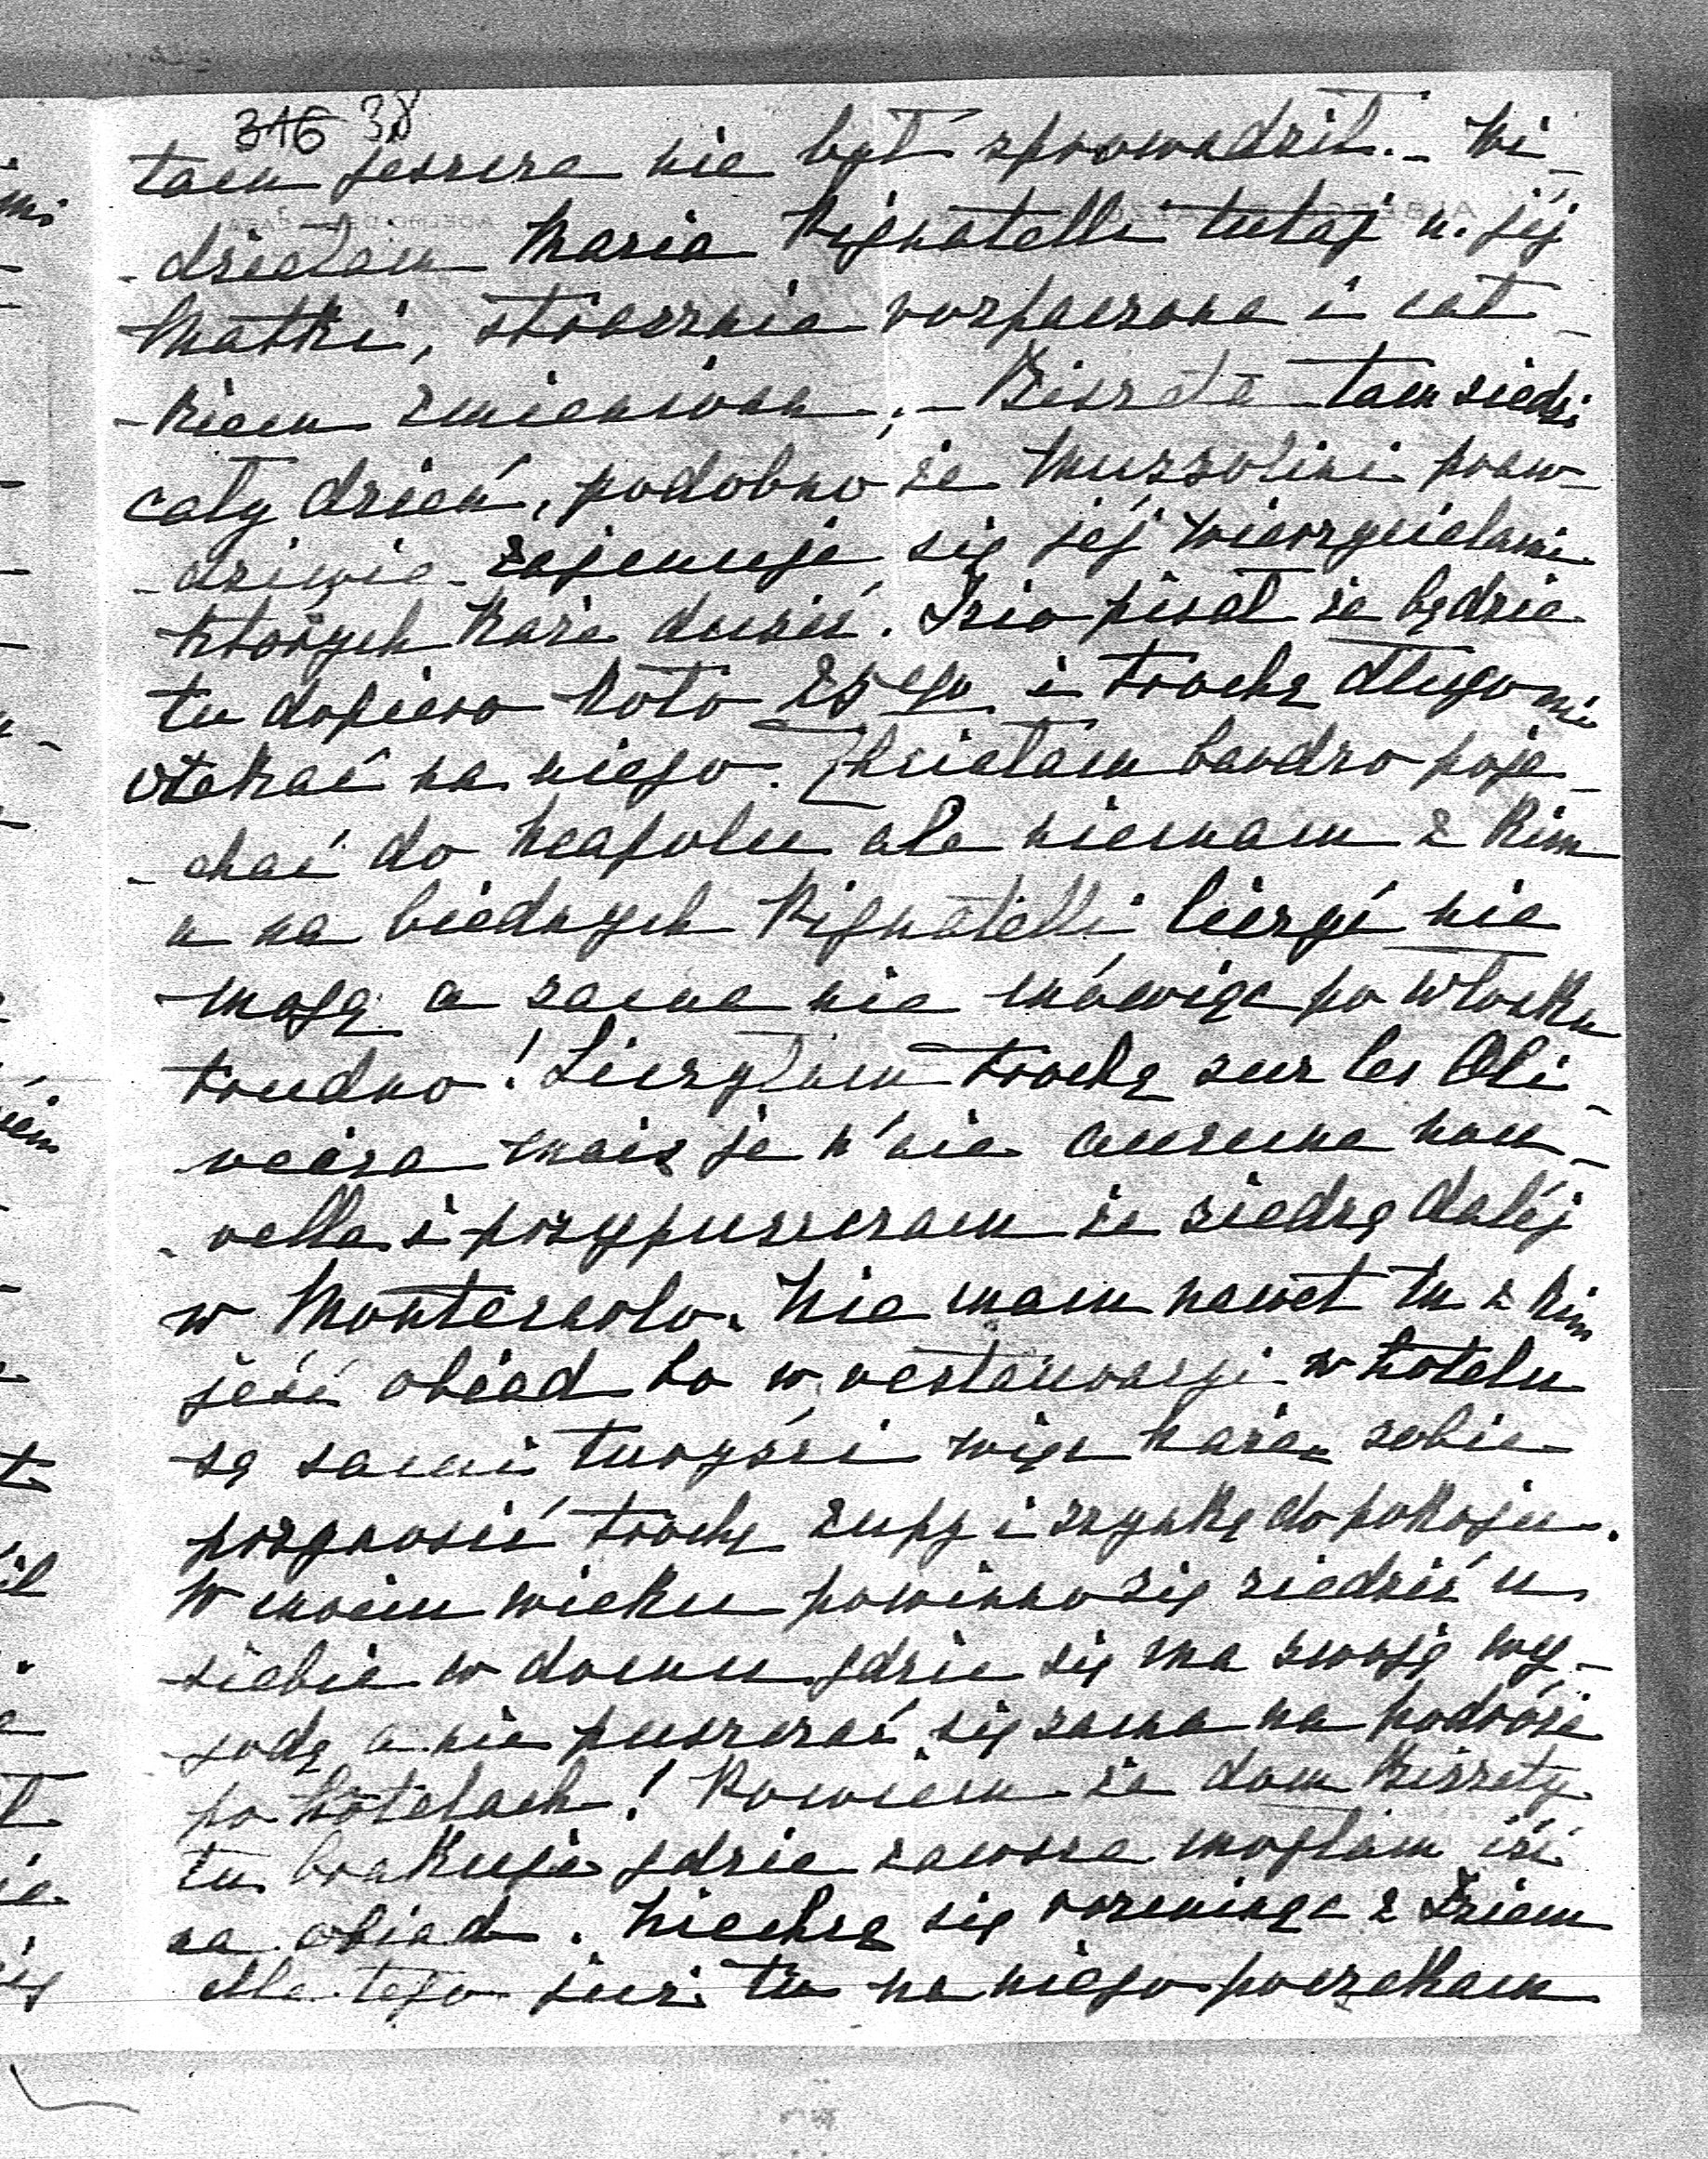 316 38
tam jeszcze nie był sprowadził. - Wi-
- działam Maria Pignatelli tutaj u jéj
Matki, strasznie rozpaczona i cał-
- kiem zmieniona. - Biszeta tam siedzi
cały dzień, podobno że Mussolini praw-
- dziwie zajmuje się jéj wierzycielami
których każe dusić. Izio pisał że będzie
tu dopiero koło 25ego i trochę długo mi
czekać na niego. Chciałam bardzo poje-
- chać do Neapolu ale niemam z kim
a na biednych Pignatelli liczyć nie
mogę a sama nie mówiąc po włosku
trudno! Liczyłam trochę sur les Oli-
veira mais je n'ai aucune nou-
- velle i przypuszczam że siedzę daléj
w Montecarlo. Nie mam nawet tu z kim
jeść obiad bo w restauracyi w hotelu
są sami turyści więc każę sobie
przynosić trochę zupy i szynkę do pokoju.
W moim wieku powinno się siedzić u
siebie w domu gdzie się ma swoję wy-
godę a nie puszczać się sama na podróże
po hotelach! Powiem że dom Biszety
tu brakuje gdzie zawsze mogłam iść
na obiad. Niechcę się rozminąć z Iziem
dla tego już tu na niego poczekam